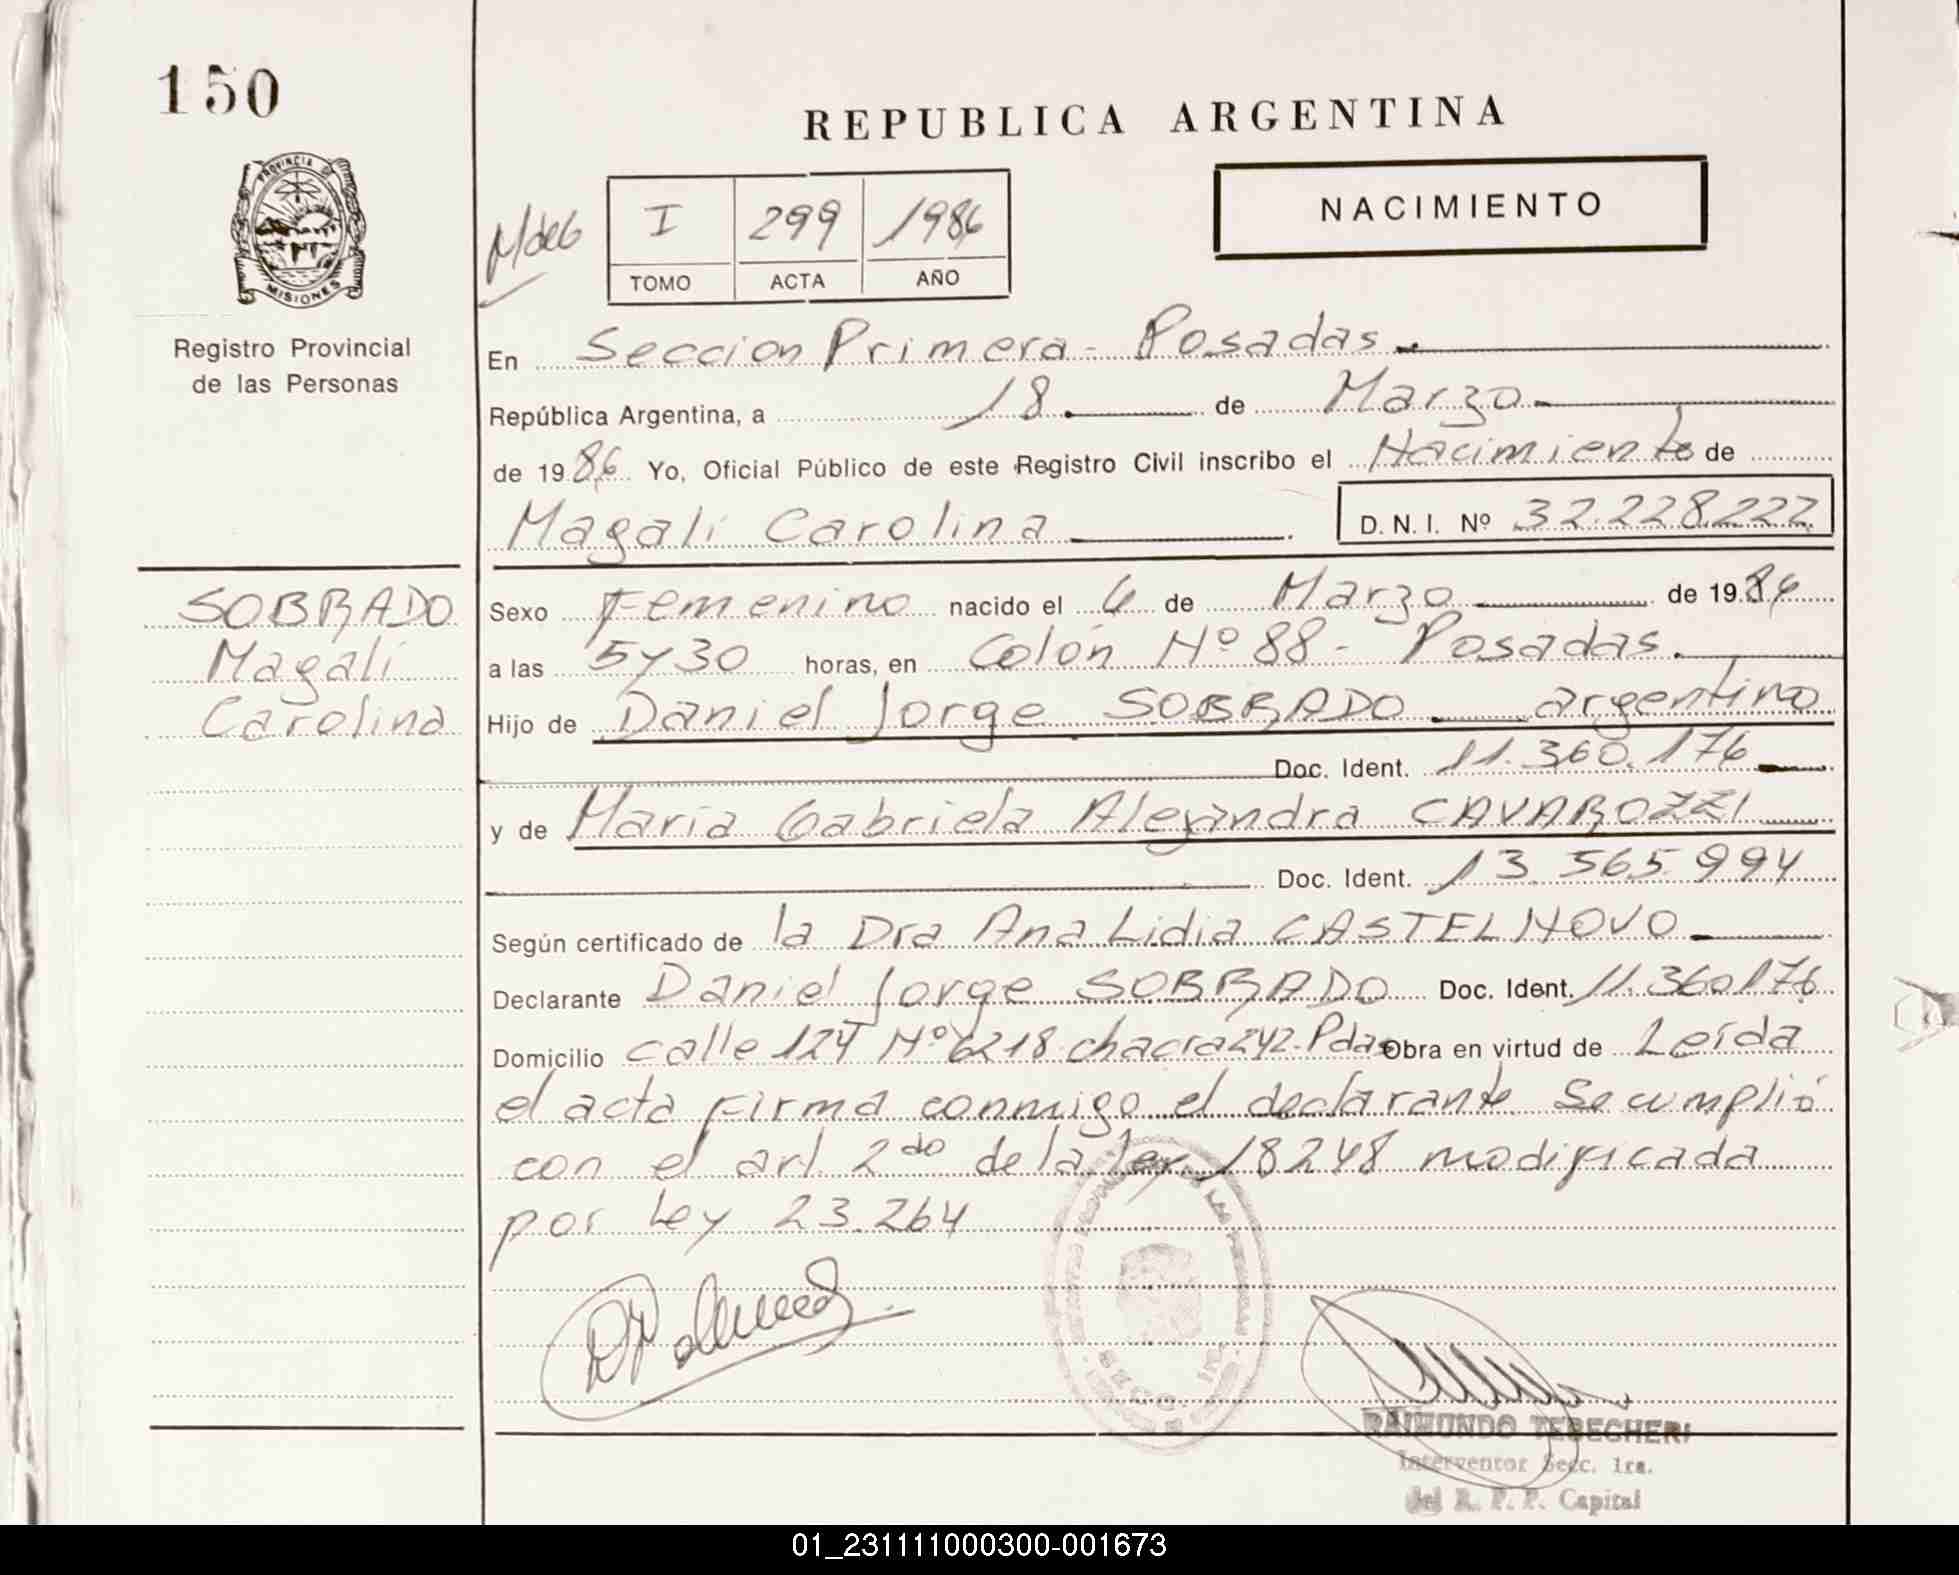 150
REPUBLICA ARGENTINA
PROVINCIA DE
MISIONES
Registro Provincial
de las Personas
I 299 1986
TOMO ACTA AÑO
NACIMIENTO
En Seccion Primera - Posadas
República Argentina, a 18 de Marzo
de 1986 Yo, Oficial Público de este Registro Civil inscribo el Nacimiento de
Magali Carolina D.N.I. Nº 32.228.222
SOBRADO
Magalí
Carolina
Sexo Femenino nacido el 6 de Marzo de 1986
a las 5y30 horas, en Colón Nº 88 - Posadas.
Hijo de Daniel Jorge SOBRADO argentino
Doc. Ident. 11.360.176
y de Maria Gabriela Alejandra CAVAROZZI
Doc. Ident. 13.565.994
Según certificado de la Dra Ana Lidia CASTELNOVO
Declarante Daniel Jorge SOBRADO Doc. Ident. 11.360176
Domicilio calle 124 Nº 6218 chacra 242. Pdas Obra en virtud de Leída
el acta firma conmigo el declarante Se cumplió
con el art. 2do de la ley 18248 modificada
por Ley 23.264
RAIMUNDO TEBECHERI
Interventor Secc. 1ra.
del R. P. P. Capital
01_231111000300-001673